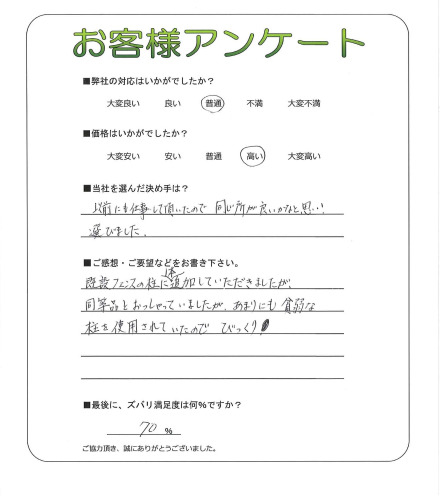 お客様アンケート
■弊社の対応はいかがでしたか？
大変良い 良い 普通 不満 大変不満
■価格はいかがでしたか？
大変安い 安い 普通 高い 大変高い
■当社を選んだ決め手は？
以前にも仕事して頂いたので 同じ所が良いかなと思い
選びました。
■ご感想・ご要望などをお書き下さい。
既設フェンスの柱に1本追加していただきましたが、
同等品とおっしゃっていましたが、あまりにも貧弱な
柱を使用されていたので びっくり!
■最後に、ズバリ満足度は何%ですか？
70 %
ご協力頂き、誠にありがとうございました。